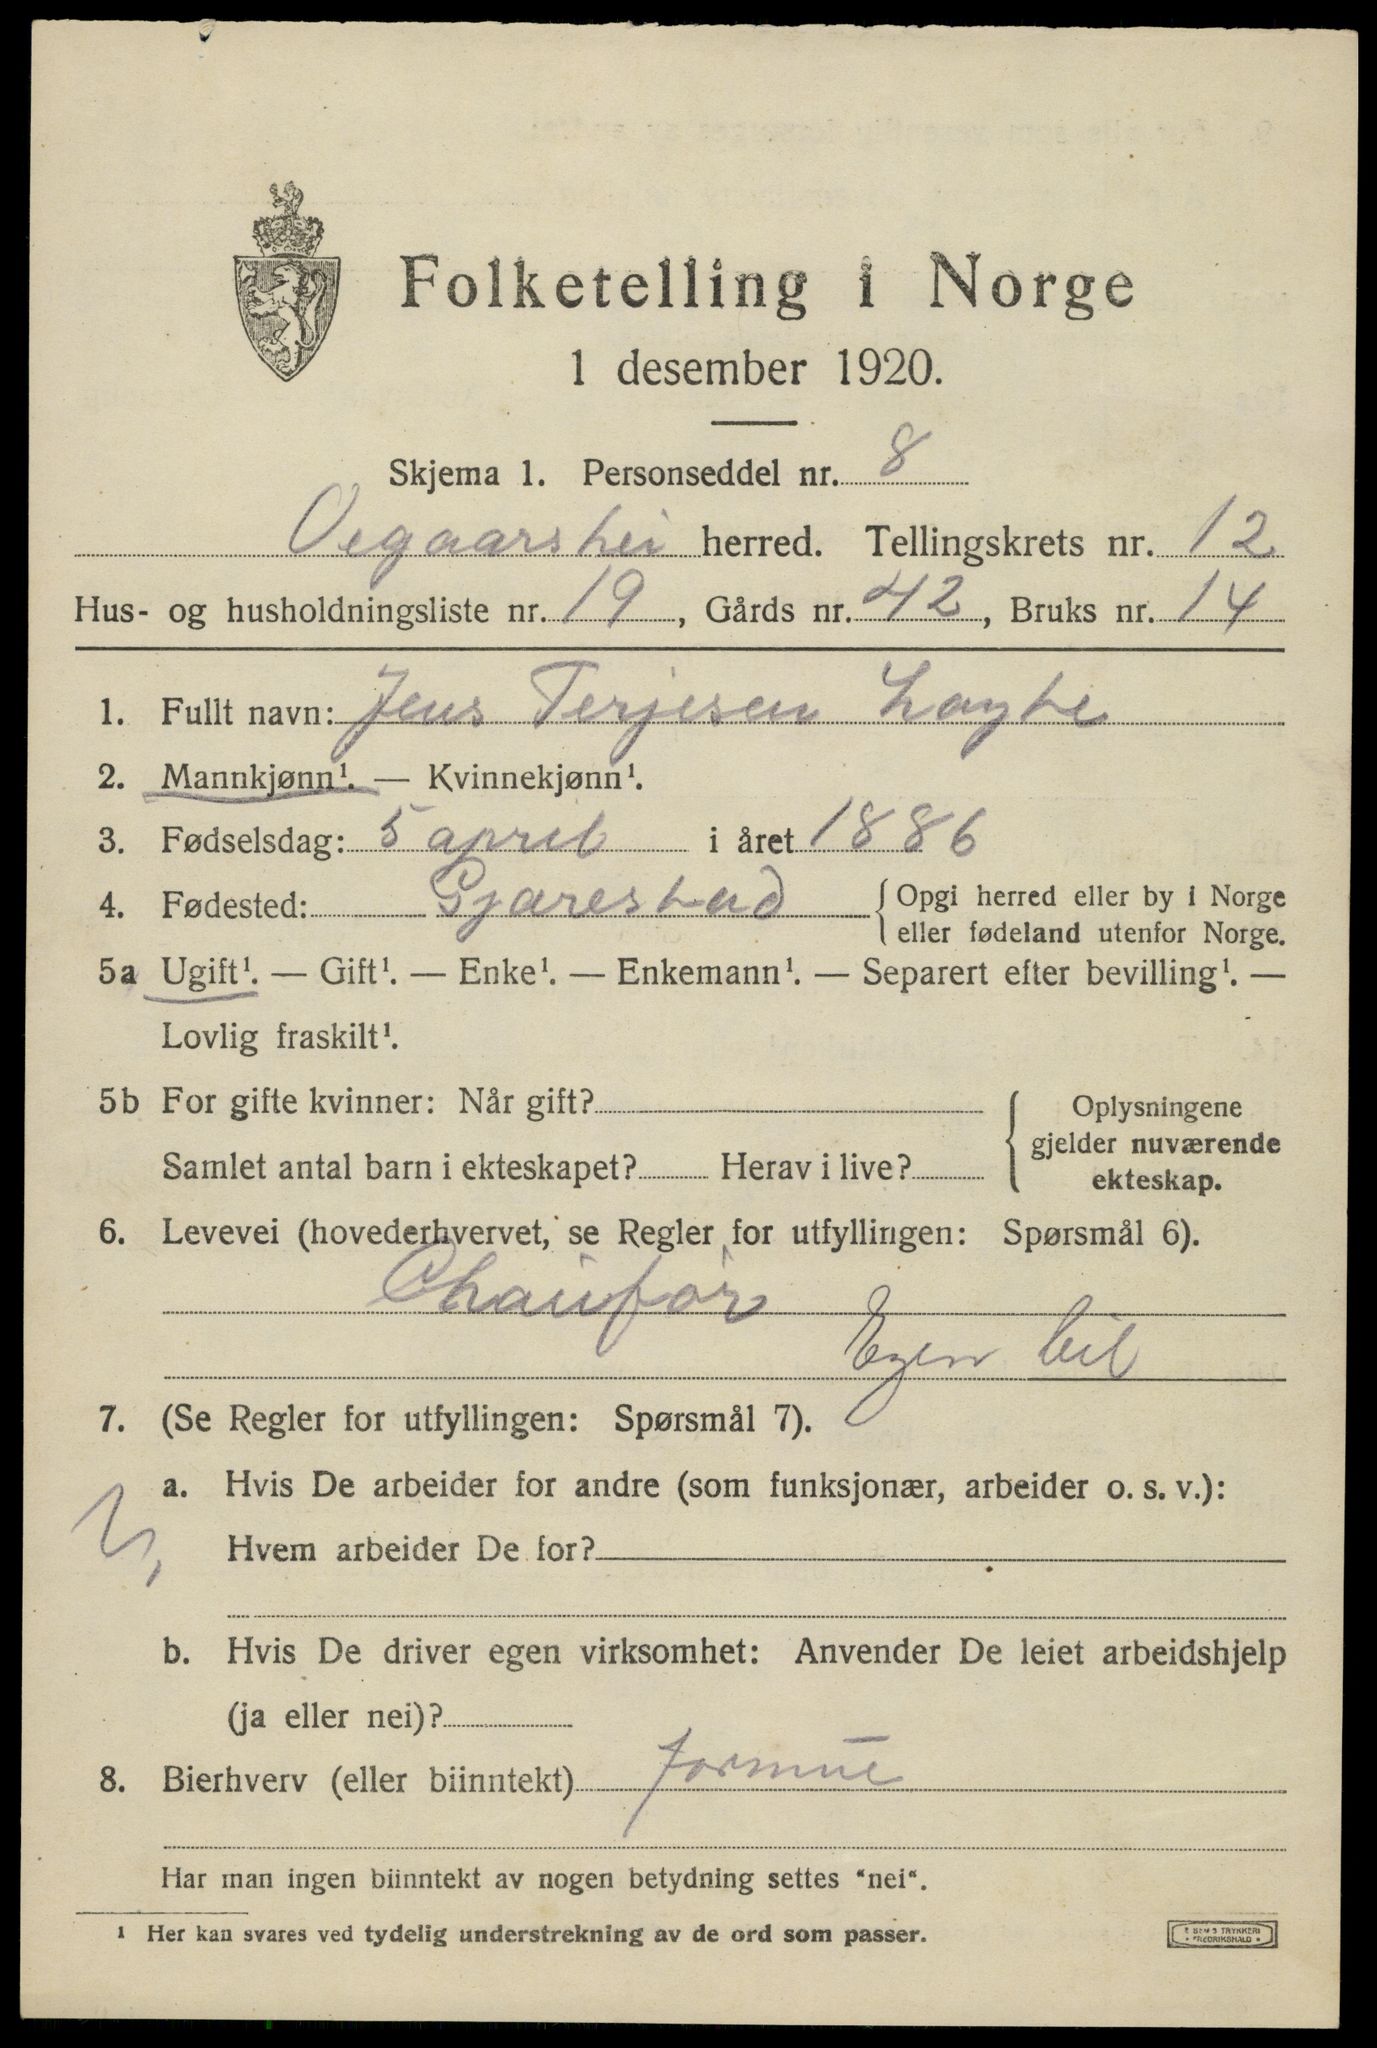 Folketelling i Norge
1 desember 1920.
Skjema 1. Personseddel nr. 8
Vegaarshei herred. Tellingskrets nr. 12
Hus- og husholdningsliste nr. 19, Gårds nr. 42, Bruks nr. 14
1. Fullt navn: Jens Terjesen
2. Mannkjønn¹. — Kvinnekjønn¹.
3. Fødselsdag: 5 april i året 1886
4. Fødested: Gjarestad { Opgi herred eller by i Norge
eller fødeland utenfor Norge.
5a Ugift¹. — Gift¹. — Enke¹. — Enkemann¹. — Separert efter bevilling¹. —
Lovlig fraskilt¹.
5b For gifte kvinner: Når gift?
Samlet antal barn i ekteskapet? Herav i live?
{ Oplysningene
gjelder nuværende
ekteskap.
6. Levevei (hovederhvervet, se Regler for utfyllingen: Spørsmål 6).
Chauifør
Egen bil
7. (Se Regler for utfyllingen: Spørsmål 7).
a. Hvis De arbeider for andre (som funksjonær, arbeider o. s. v.):
Hvem arbeider De for?
b. Hvis De driver egen virksomhet: Anvender De leiet arbeidshjelp
(ja eller nei)?
8. Bierhverv (eller biinntekt) formue
Har man ingen biinntekt av nogen betydning settes "nei".
¹ Her kan svares ved tydelig understrekning av de ord som passer.